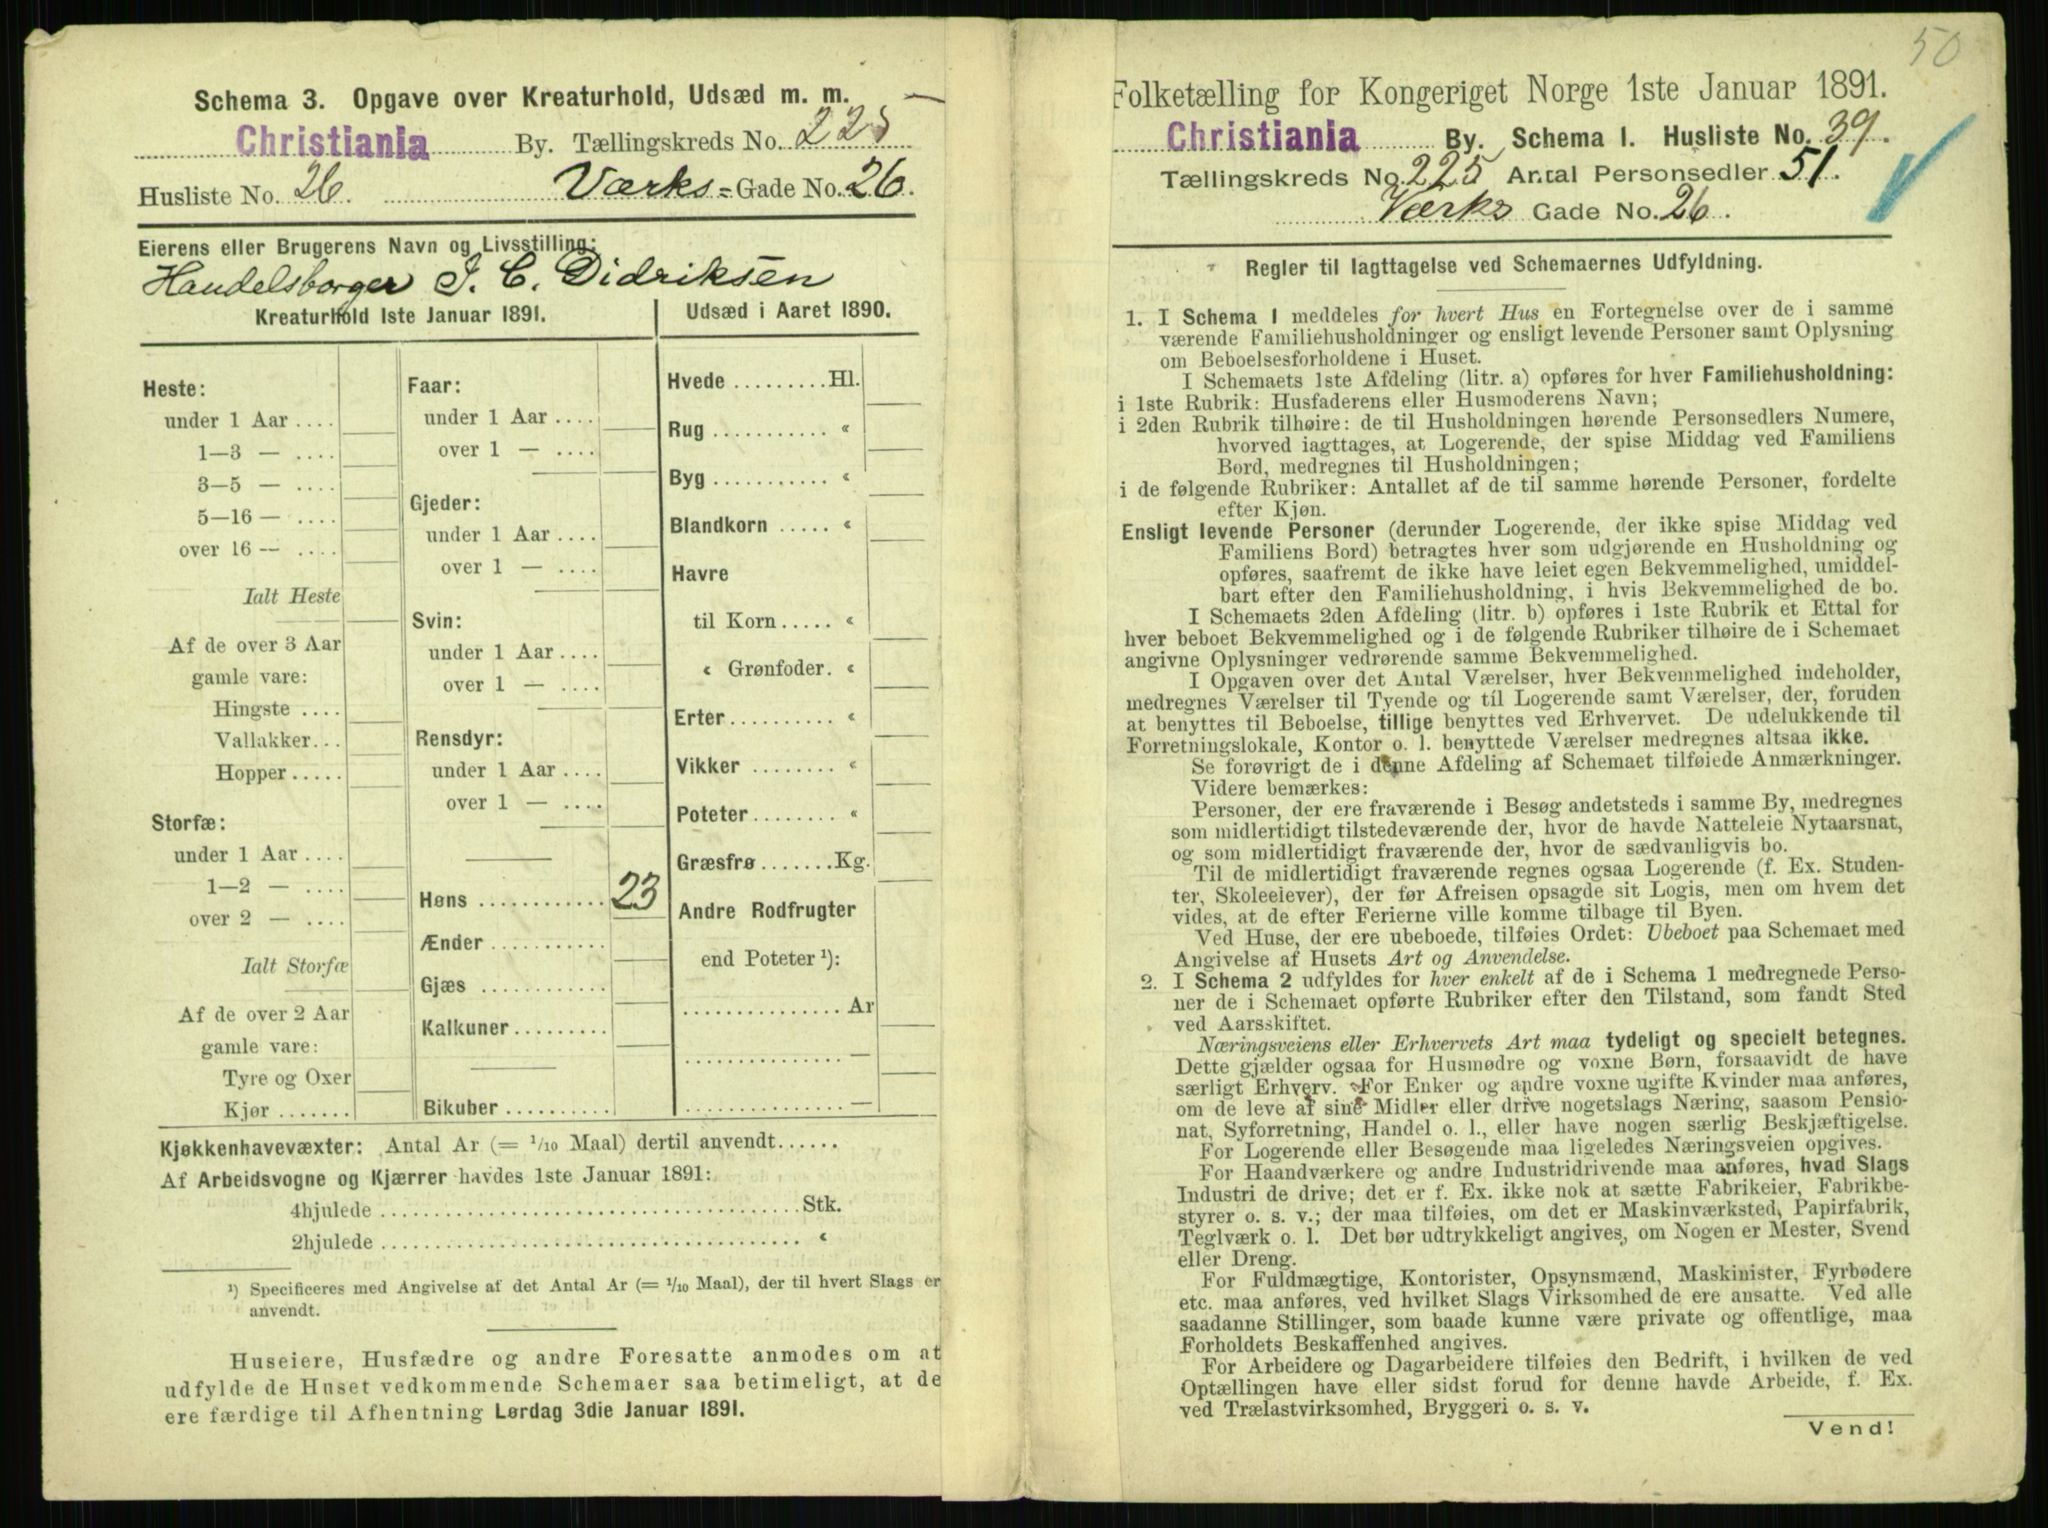 Schema 3. Opgave over Kreaturhold, Udsæd m. m.
Christiania By. Tællingskreds No. 225
Husliste No. 26. Værks-Gade No. 26.
Eierens eller Brugerens Navn og Livsstilling:
Handelsborger J. C. Didriksen
Kreaturhold 1ste Januar 1891.
Heste:
under 1 Aar ....
1—3 — ....
3—5 — ....
5—16 — ....
over 16 — ....
Ialt Heste
Af de over 3 Aar
gamle vare:
Hingste ....
Vallakker...
Hopper.....
Storfæ:
under 1 Aar ....
1—2 — ....
over 2 — ....
Ialt Storfæ
Af de over 2 Aar
gamle vare:
Tyre og Oxer
Kjør .......
Faar:
under 1 Aar ....
over 1 — ....
Gjeder:
under 1 Aar ....
over 1 — ....
Svin:
under 1 Aar ....
over 1 — ....
Rensdyr:
under 1 Aar ....
over 1 — ....
Høns ............ 23
Ænder ...........
Gjæs ............
Kalkuner.........
Bikuber ..........
Udsæd i Aaret 1890.
Hvede .........Hl.
Rug ........... «
Byg ........... «
Blandkorn ..... «
Havre
til Korn ..... «
« Grønfoder. «
Erter.......... «
Vikker ........ «
Poteter ........ «
Græsfrø .......Kg.
Andre Rodfrugter
end Poteter ¹):
............... Ar
............... —
............... —
Kjøkkenhavevæxter: Antal Ar (= 1/10 Maal) dertil anvendt......
Af Arbeidsvogne og Kjærrer havdes 1ste Januar 1891:
4hjulede ........................................Stk.
2hjulede ........................................ «
¹) Specificeres med Angivelse af det Antal Ar (= 1/10 Maal), der til hvert Slags er
anvendt.
Huseiere, Husfædre og andre Foresatte anmodes om at
udfylde de Huset vedkommende Schemaer saa betimeligt, at de
ere færdige til Afhentning Lørdag 3die Januar 1891.
50
Folketælling for Kongeriget Norge 1ste Januar 1891.
Christiania By. Schema I. Husliste No. 39.
Tællingskreds No. 225 Antal Personsedler 51.
Værks Gade No. 26.
Regler til Iagttagelse ved Schemaernes Udfyldning.
1. I Schema 1 meddeles for hvert Hus en Fortegnelse over de i samme
værende Familiehusholdninger og ensligt levende Personer samt Oplysning
om Beboelsesforholdene i Huset.
I Schemaets 1ste Afdeling (litr. a) opføres for hver Familiehusholdning:
i 1ste Rubrik: Husfaderens eller Husmoderens Navn;
i 2den Rubrik tilhøire: de til Husholdningen hørende Personsedlers Numere,
hvorved iagttages, at Logerende, der spise Middag ved Familiens
Bord, medregnes til Husholdningen;
i de følgende Rubriker: Antallet af de til samme hørende Personer, fordelte
efter Kjøn.
Ensligt levende Personer (derunder Logerende, der ikke spise Middag ved
Familiens Bord) betragtes hver som udgjørende en Husholdning og
opføres, saafremt de ikke have leiet egen Bekvemmelighed, umiddel-
bart efter den Familiehusholdning, i hvis Bekvemmelighed de bo.
I Schemaets 2den Afdeling (litr. b) opføres i 1ste Rubrik et Ettal for
hver beboet Bekvemmelighed og i de følgende Rubriker tilhøire de i Schemaet
angivne Oplysninger vedrørende samme Bekvemmelighed.
I Opgaven over det Antal Værelser, hver Bekvemmelighed indeholder,
medregnes Værelser til Tyende og til Logerende samt Værelser, der, foruden
at benyttes til Beboelse, tillige benyttes ved Erhvervet. De udelukkende til
Forretningslokale, Kontor o. l. benyttede Værelser medregnes altsaa ikke.
Se forøvrigt de i denne Afdeling af Schemaet tilføiede Anmærkninger.
Videre bemærkes:
Personer, der ere fraværende i Besøg andetsteds i samme By, medregnes
som midlertidigt tilstedeværende der, hvor de havde Natteleie Nytaarsnat,
og som midlertidigt fraværende der, hvor de sædvanligvis bo.
Til de midlertidigt fraværende regnes ogsaa Logerende (f. Ex. Studen-
ter, Skoleelever), der før Afreisen opsagde sit Logis, men om hvem det
vides, at de efter Ferierne ville komme tilbage til Byen.
Ved Huse, der ere ubeboede, tilføies Ordet: Ubeboet paa Schemaet med
Angivelse af Husets Art og Anvendelse.
2. I Schema 2 udfyldes for hver enkelt af de i Schema 1 medregnede Perso-
ner de i Schemaet opførte Rubriker efter den Tilstand, som fandt Sted
ved Aarsskiftet.
Næringsveiens eller Erhvervets Art maa tydeligt og specielt betegnes.
Dette gjælder ogsaa for Husmødre og voxne Børn, forsaavidt de have
særligt Erhverv. For Enker og andre voxne ugifte Kvinder maa anføres,
om de leve af sine Midler eller drive nogetslags Næring, saasom Pensio-
nat, Syforretning, Handel o. l., eller have nogen særlig Beskjæftigelse.
For Logerende eller Besøgende maa ligeledes Næringsveien opgives.
For Haandværkere og andre Industridrivende maa anføres, hvad Slags
Industri de drive; det er f. Ex. ikke nok at sætte Fabrikeier, Fabrikbe-
styrer o. s. v.; der maa tilføies, om det er Maskinværksted, Papirfabrik,
Teglværk o. l. Det bør udtrykkeligt angives, om Nogen er Mester, Svend
eller Dreng.
For Fuldmægtige, Kontorister, Opsynsmænd, Maskinister, Fyrbødere
etc. maa anføres, ved hvilket Slags Virksomhed de ere ansatte. Ved alle
saadanne Stillinger, som baade kunne være private og offentlige, maa
Forholdets Beskaffenhed angives.
For Arbeidere og Dagarbeidere tilføies den Bedrift, i hvilken de ved
Optællingen have eller sidst forud for denne havde Arbeide, f. Ex.
ved Trælastvirksomhed, Bryggeri o. s. v.
Vend!